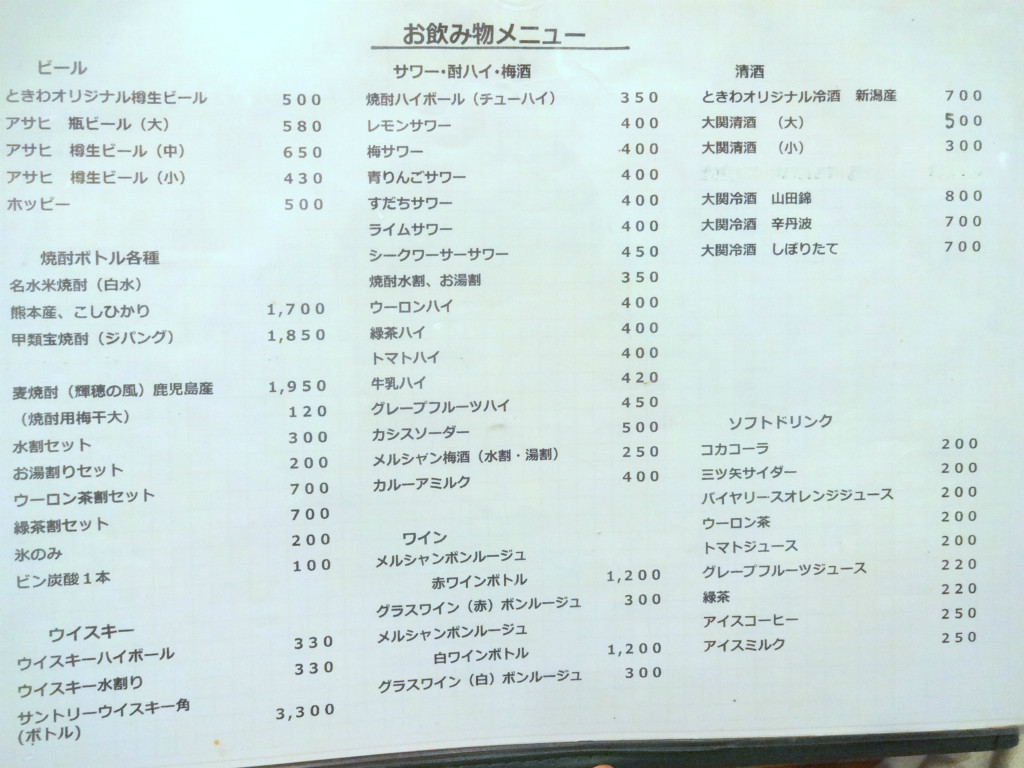 お飲み物メニュー
ビール
ときわオリジナル樽生ビール 500
アサヒ 瓶ビール（大） 580
アサヒ 樽生ビール（中） 650
アサヒ 樽生ビール（小） 430
ホッピー 500
焼酎ボトル各種
名水米焼酎（白水）
熊本産、こしひかり 1,700
甲類宝焼酎（ジパング） 1,850
麦焼酎（輝穂の風）鹿児島産 1,950
（焼酎用梅干大） 120
水割セット 300
お湯割りセット 200
ウーロン茶割セット 700
緑茶割セット 700
氷のみ 200
ビン炭酸１本 100
ウイスキー
ウイスキーハイボール 330
ウイスキー水割り 330
サントリーウイスキー角 3,300
(ボトル)
サワー・酎ハイ・梅酒
焼酎ハイボール（チューハイ） 350
レモンサワー 400
梅サワー 400
青りんごサワー 400
すだちサワー 400
ライムサワー 400
シークワーサーサワー 450
焼酎水割、お湯割 350
ウーロンハイ 400
緑茶ハイ 400
トマトハイ 400
牛乳ハイ 420
グレープフルーツハイ 450
カシスソーダー 500
メルシャン梅酒（水割・湯割） 250
カルーアミルク 400
ワイン
メルシャンボンルージュ
赤ワインボトル 1,200
グラスワイン（赤）ボンルージュ 300
メルシャンボンルージュ
白ワインボトル 1,200
グラスワイン（白）ボンルージュ 300
清酒
ときわオリジナル冷酒 新潟産 700
大関清酒 （大） 500
大関清酒 （小） 300
大関冷酒 山田錦 800
大関冷酒 辛丹波 700
大関冷酒 しぼりたて 700
ソフトドリンク
コカコーラ 200
三ツ矢サイダー 200
バイヤリースオレンジジュース 200
ウーロン茶 200
トマトジュース 200
グレープフルーツジュース 220
緑茶 220
アイスコーヒー 250
アイスミルク 250